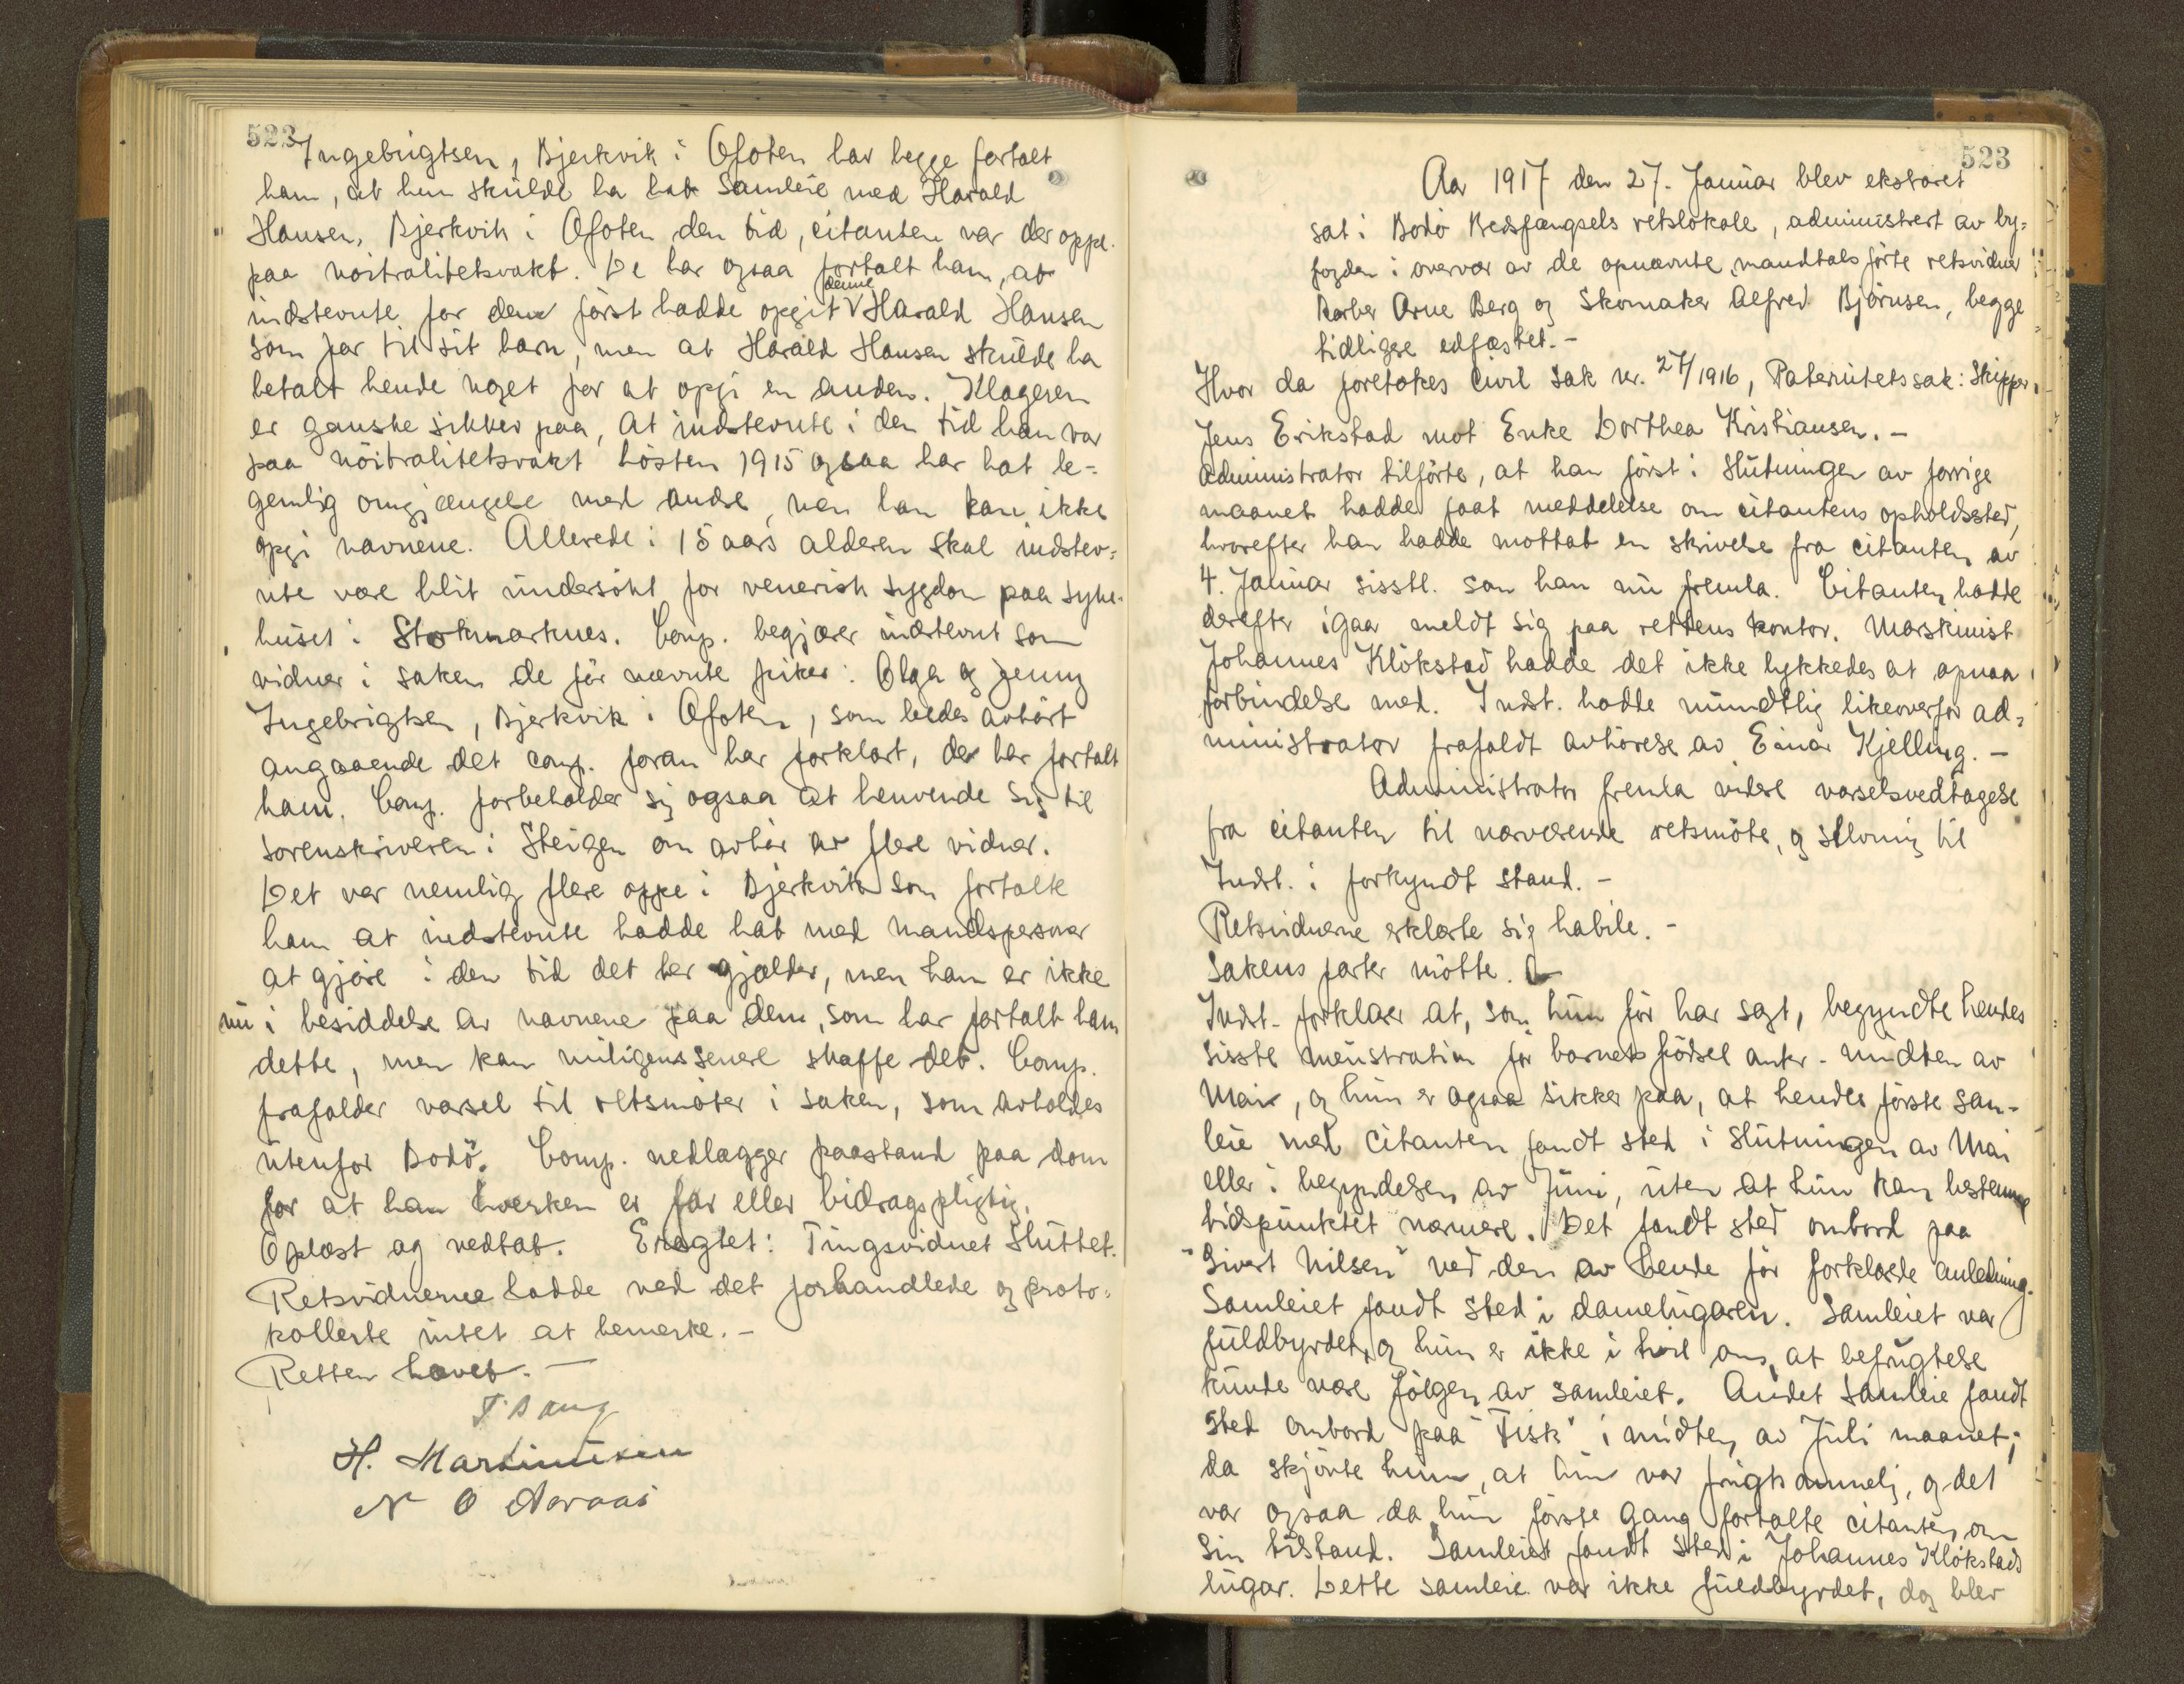 522
Ingebrigtsen, Bjerkvik i Ofoten har begge fortalt
ham, at hun skulde ha hat samleie med Harald
Hansen, Bjerkvik i Ofoten den tid, citanten var der oppe
paa nöitralitetsvakt. De har ogsaa fortalt ham, at
indstevnte for dem først hadde opgit denne Harald Hansen
som far til sit barn, men at Harald Hansen skulde ha
betalt hende noget for at opgi en anden. Klageren
er ganske sikker paa, at indstevnte i den tid han var
paa nöitralitetsvakt hösten 1915 ogsaa har hat le=
gemlig omgjængelse med andre, men han kan ikke
opgi navnene. Allerede i 15 aars alderen skal indstev=
nte være blit undersökt for venerisk sygdom paa syke-
huset i Stokmarknes. Comp. begjærer indstevnt som
vidner i saken de før nævnte piker: Olga og Jenny
Ingebrigtsen, Bjerkvik i Ofoten, som bedes avhört
angaaende det comp. foran har forklart, de har fortalt
ham. Comp. forbeholder sig ogsaa at henvende sig til
sorenskriveren i Steigen om avhör av flere vidner.
Det var nemlig flere oppe i Bjerkvik som fortalte
ham at indstevnte hadde hat med mandspersoner
at gjöre i den tid det her gjælder, men han er ikke
nu i besiddelse av navnene paa dem, som har fortalt ham
dette, men kan muligens senere skaffe det. Comp.
frafalder varsel til retsmöter i saken, som avholdes
utenfor Bodö. Comp. nedlægger paastand paa dom
for at han hverken er far eller bidragspligtig.
Oplæst og vedtat. Eragtet: Tingsvidnet sluttet.
Retsvidnerne hadde ved det forhandlede og proto=
kollerte intet at bemerke.-
Retten hævet.-
H. Martinussen
N O Aavaas
523
Aar 1917 den 27. Januar blev ekstraret
sat i Bodö Kredsfængsels retslokale, administrert av by=
fogden i overvær av de opnævnte mandtalsförte retsvidner
Barber Arne Berg og Skomaker Alfred Björnsen, begge
tidligere edfæstet.-
Hvor da foretokes Civil sak nr. 27/1916, Paternitetssak: Skipper
Jens Erikstad mot Enke Dorthea Kristiansen.-
Administrator tilförte, at han först i slutningen av forrige
maanet hadde faat meddelelse om citantens opholdssted,
hvorefter han hadde mottat en skrivelse fra citanten av
4. Januar sisstl. som han nu fremla. Citanten hadde
derefter igaar meldt sig paa rettens kontor. Maskinist
Johannes Klökstad hadde det ikke lykkedes at opnaa
forbindelse med. Indst. hadde mundtlig likeoverfor ad=
ministrator frafaldt avhörelse av Einar Kjelling.-
Administrator fremla videre varselsvedtagelse
fra citanten til nærværende retsmöte, og stevning til
Indst. i forkyndt stand.-
Retsvidnerne erklærte sig habile.-
Sakens parter mötte.
Indst. forklarer at, som hun för har sagt, begyndte hendes
sisste menstration för barnets födsel antr. midten av
Mai, og hun er ogsaa sikker paa, at hendes förste sam-
leie med citanten fandt sted i slutningen av Mai
eller i begyndelsen av Juni, uten at hun kan bestemme
tidspunktet nærmere. Det fandt sted ombord paa
"Sivert Nilsen" ved den av hende för forklarede anledning.
Samleiet fandt sted i damelugaren. Samleiet var
fuldbyrdet, og hun er ikke i tvil om, at befrugtelse
kunde være fölgen av samleiet. Andet samleie fandt
sted ombord paa "Fisk" i midten av Juli maanet;
da skjönte hun, at hun var frugtsommelig, og det
var ogsaa da hun förste gang fortalte citanten om
sin tilstand. Samleiet fandt sted i Johannes Klökstads
lugar. Dette samleie var ikke fuldbyrdet, dog blev